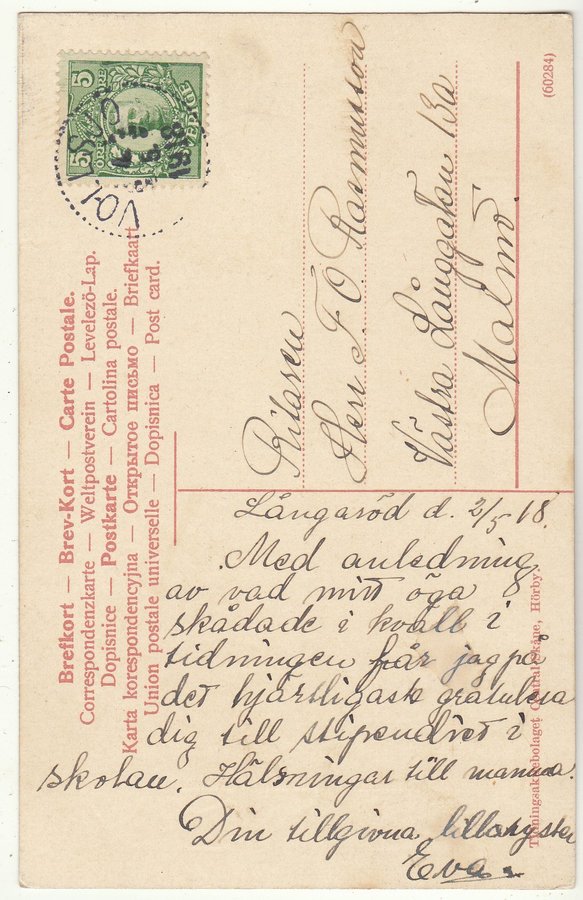 Brefkort — Brev-Kort — Carte Postale.
Correspondenzkarte — Weltpostverein — Levelező-Lap.
Dopisnice — Postkarte — Cartolina postale.
Karta korespondencyjna — Открытое письмо — Briefkaart
Union postale universelle — Dopisnica — Post card.
5 5
SVERIGE
1918
Ritaren
Herr F O Rasmusson
Västra Långgatan 13a
Malmö
(60284)
Långaröd d. 2/5 18.
Med anledning
av vad mitt öga
skådade i kväll i
tidningen får jag på
det hjärtligaste gratulera
dig till stipendiet i
skolan. Hälsningar till mamma.
Din tillgivna lillasyster
Eva
Tidningsaktiebolaget Mellersta Skåne, Hörby.